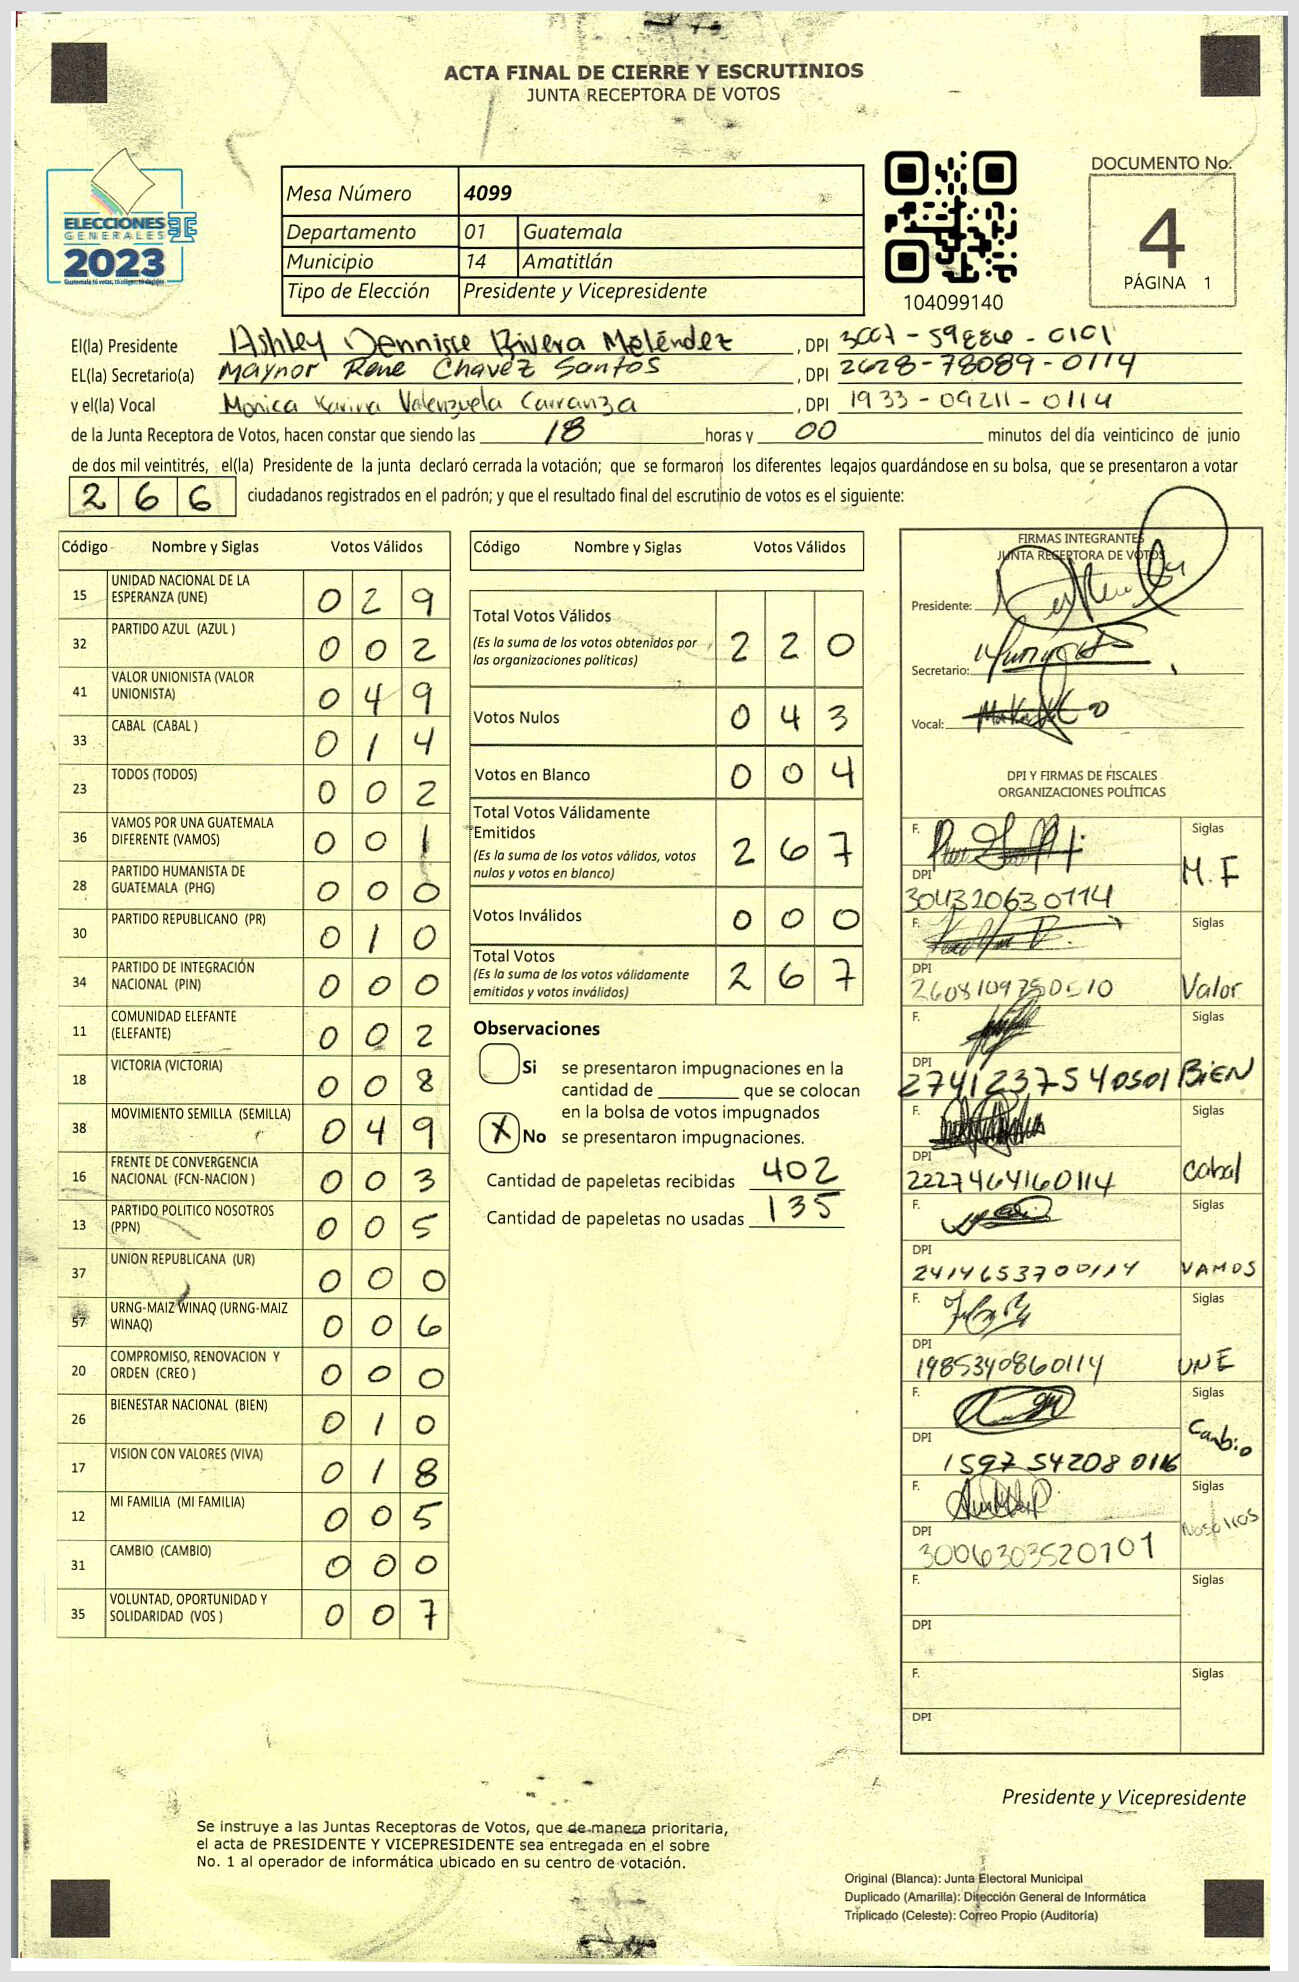 ACTA FINAL DE CIERRE Y ESCRUTINIOS
JUNTA RECEPTORA DE VOTOS
ELECCIONES
GENERALES
2023
Mesa Número 4099
Departamento 01 Guatemala
Municipio 14 Amatitlán
Tipo de Elección Presidente y Vicepresidente
104099140
DOCUMENTO No.
4
PÁGINA 1
El(la) Presidente Ashley Dennisse Rivera Meléndez , DPI
EL(la) Secretario(a) Maynor Rene Chavez Santos , DPI 2628-78089-0114
y el(la) Vocal Monica Karina Valenzuela Carranza , DPI 1933-09211-0114
de la Junta Receptora de Votos, hacen constar que siendo las 18 horas y 00 minutos del día veinticinco de junio
de dos mil veintitrés, el(la) Presidente de la junta declaró cerrada la votación; que se formaron los diferentes legajos guardándose en su bolsa, que se presentaron a votar
266 ciudadanos registrados en el padrón; y que el resultado final del escrutinio de votos es el siguiente:
Código Nombre y Siglas Votos Válidos
15 UNIDAD NACIONAL DE LA ESPERANZA (UNE) 029
32 PARTIDO AZUL (AZUL ) 002
41 VALOR UNIONISTA (VALOR UNIONISTA) 049
33 CABAL (CABAL ) 014
23 TODOS (TODOS) 002
36 VAMOS POR UNA GUATEMALA DIFERENTE (VAMOS) 001
28 PARTIDO HUMANISTA DE GUATEMALA (PHG) 000
30 PARTIDO REPUBLICANO (PR) 010
34 PARTIDO DE INTEGRACIÓN NACIONAL (PIN) 000
11 COMUNIDAD ELEFANTE (ELEFANTE) 002
18 VICTORIA (VICTORIA) 008
38 MOVIMIENTO SEMILLA (SEMILLA) 049
16 FRENTE DE CONVERGENCIA NACIONAL (FCN-NACION ) 003
13 PARTIDO POLITICO NOSOTROS (PPN) 005
37 UNION REPUBLICANA (UR) 000
57 URNG-MAIZ WINAQ (URNG-MAIZ WINAQ) 006
20 COMPROMISO, RENOVACION Y ORDEN (CREO ) 000
26 BIENESTAR NACIONAL (BIEN) 010
17 VISION CON VALORES (VIVA) 018
12 MI FAMILIA (MI FAMILIA) 005
31 CAMBIO (CAMBIO) 000
35 VOLUNTAD, OPORTUNIDAD Y SOLIDARIDAD (VOS ) 007
Código Nombre y Siglas Votos Válidos
Total Votos Válidos 220
(Es la suma de los votos obtenidos por
las organizaciones políticas)
Votos Nulos 043
Votos en Blanco 004
Total Votos Válidamente
Emitidos 267
(Es la suma de los votos válidos, votos
nulos y votos en blanco)
Votos Inválidos 000
Total Votos 267
(Es la suma de los votos válidamente
emitidos y votos inválidos)
Observaciones
Si se presentaron impugnaciones en la
cantidad de ________ que se colocan
en la bolsa de votos impugnados
X No se presentaron impugnaciones.
Cantidad de papeletas recibidas 402
Cantidad de papeletas no usadas 135
FIRMAS INTEGRANTES
JUNTA RECEPTORA DE VOTOS
Presidente:
Secretario:
Vocal:
DPI Y FIRMAS DE FISCALES
ORGANIZACIONES POLÍTICAS
F. Siglas
DPI M.F
3043206300114
F.
DPI
Valor
F. Siglas
DPI
2741237540501 BiEN
F. Siglas
DPI
2227464160114 Cabal
F. Siglas
DPI
2414653700114 VAMOS
F. Siglas
DPI
1985340860114 UNE
F. Siglas
DPI Cambio
1597542080116
F. Siglas
DPI Nosotros
3006303520101
F. Siglas
DPI
F. Siglas
DPI
Presidente y Vicepresidente
Se instruye a las Juntas Receptoras de Votos, que de manera prioritaria,
el acta de PRESIDENTE Y VICEPRESIDENTE sea entregada en el sobre
No. 1 al operador de informática ubicado en su centro de votación.
Original (Blanca): Junta Electoral Municipal
Duplicado (Amarilla): Dirección General de Informática
Triplicado (Celeste): Correo Propio (Auditoría)